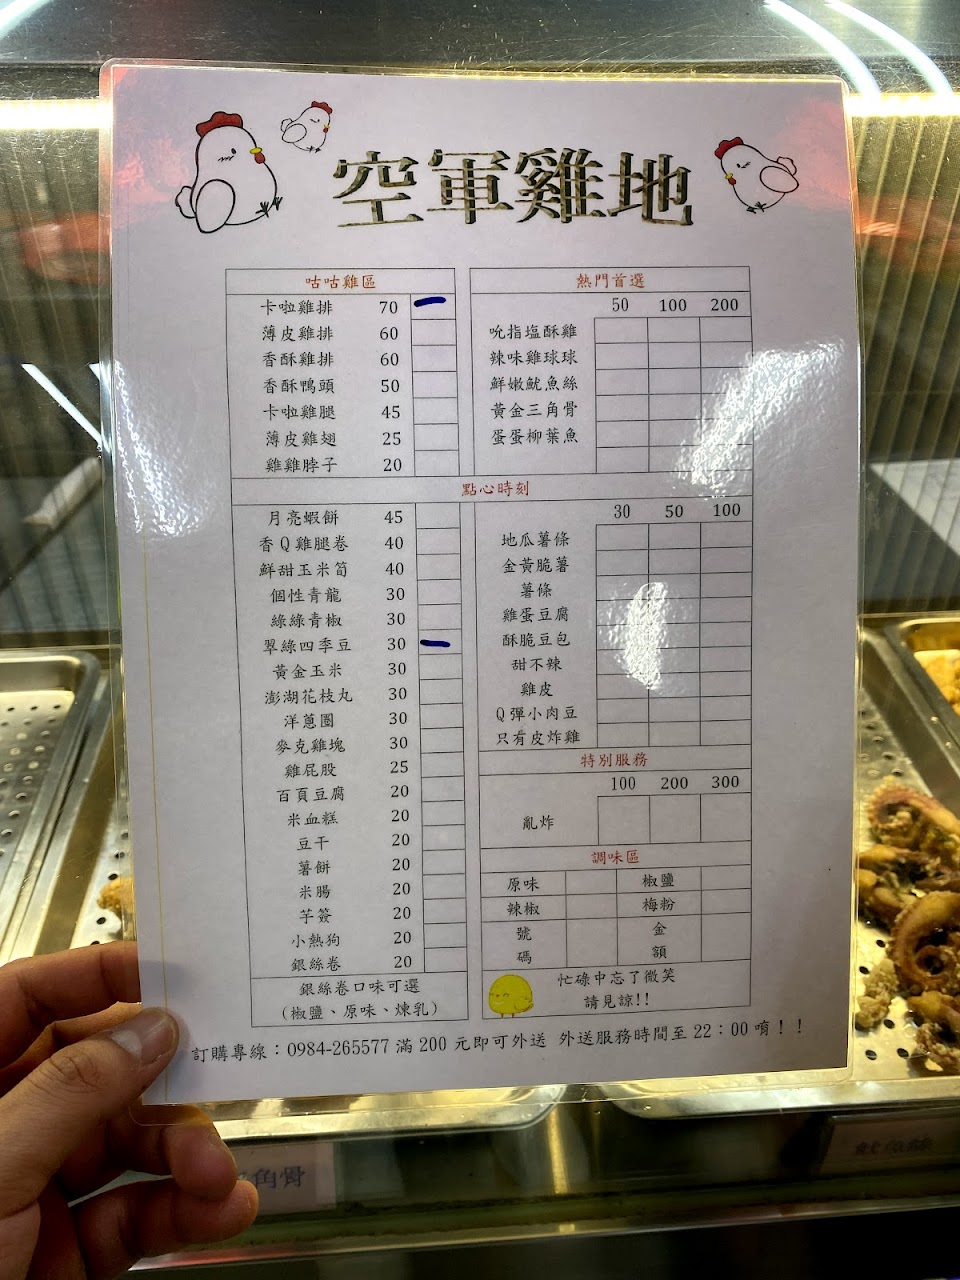 空軍雞地
咕咕雞區
卡啦雞排 70
薄皮雞排 60
香酥雞排 60
香酥鴨頭 50
卡啦雞腿 45
薄皮雞翅 25
雞雞脖子 20
熱門首選
50 100 200
吮指塩酥雞
辣味雞球球
鮮嫩魷魚絲
黃金三角骨
蛋蛋柳葉魚
點心時刻
月亮蝦餅 45
香Q雞腿卷 40
鮮甜玉米筍 40
個性青龍 30
綠綠青椒 30
翠綠四季豆 30
黃金玉米 30
澎湖花枝丸 30
洋蔥圈 30
麥克雞塊 30
雞屁股 25
百頁豆腐 20
米血糕 20
豆干 20
薯餅 20
米腸 20
芋簽 20
小熱狗 20
銀絲卷 20
銀絲卷口味可選
(椒鹽、原味、煉乳)
30 50 100
地瓜薯條
金黃脆薯
薯條
雞蛋豆腐
酥脆豆包
甜不辣
雞皮
Q彈小肉豆
只有皮炸雞
特別服務
100 200 300
亂炸
調味區
原味 椒鹽
辣椒 梅粉
號碼 金額
忙碌中忘了微笑
請見諒!!
訂購專線：0984-265577 滿 200 元即可外送 外送服務時間至 22：00 唷！！
角骨
魷魚絲